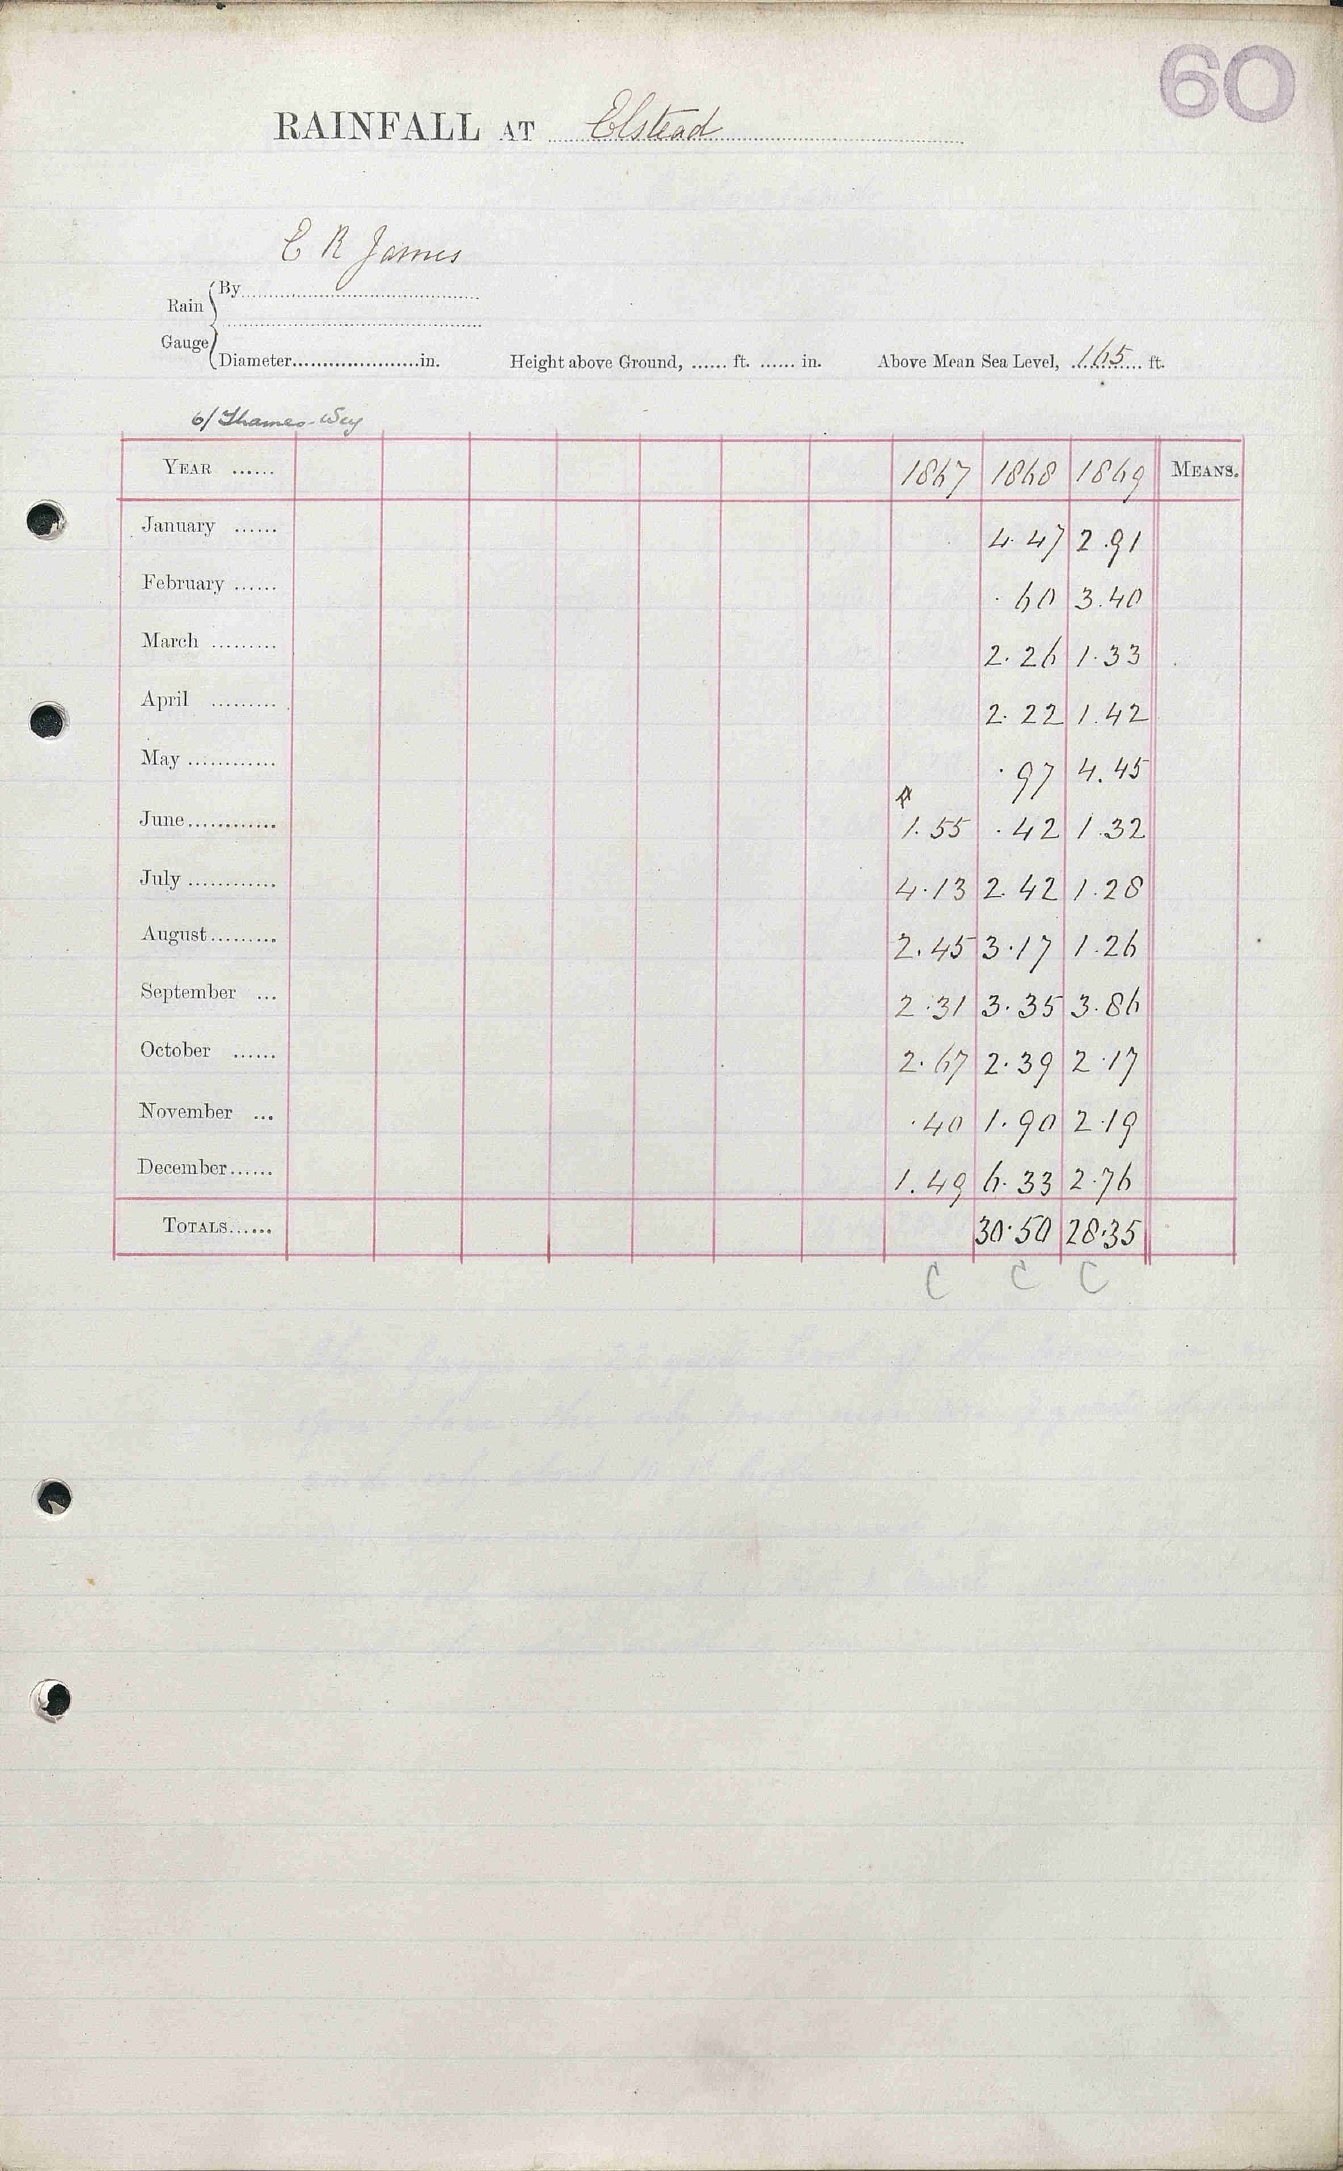 60
RAINFALL AT Elstead
C R James
Rain Gauge
By
Diameter.....................in. Height above Ground, ...... ft. ...... in. Above Mean Sea Level, 165 ft.
6/ Thames-Wey
YEAR ...... 1867 1868 1869 MEANS.
January ...... 4.47 2.91
February ...... .60 3.40
March ......... 2.26 1.33
April ......... 2.22 1.42
May ............ .97 4.45
June............ 1.55 .42 1.32
July ............ 4.13 2.42 1.28
August......... 2.45 3.17 1.26
September ... 2.31 3.35 3.86
October ...... 2.67 2.39 2.17
November ... .40 1.90 2.19
December...... 1.49 6.33 2.76
TOTALS...... 30.50 28.35
C C C